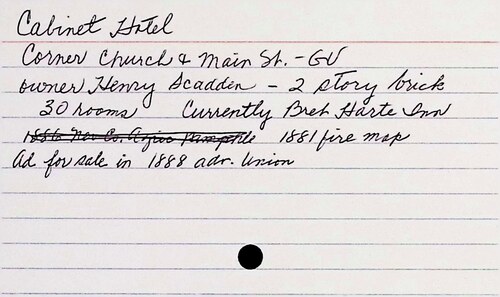 Cabinet Hotel
Corner Church & Main St. - GV
owner Henry Scadden - 2 story brick
30 rooms Currently Bret Harte Inn
1886 Nev Co. Agric Pamphle 1881 fire map
Ad for sale in 1888 adv. Union